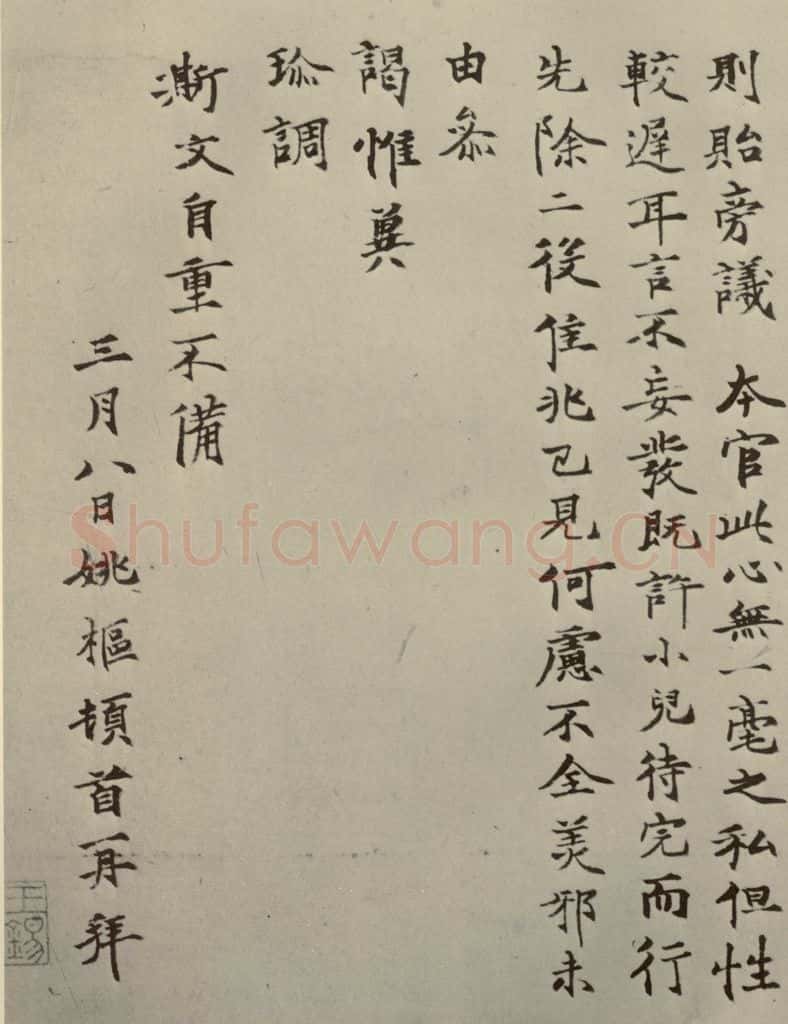 則貽旁議 本官此心無一毫之私但性
較遲耳言不妄發既許小兒待完而行
先除二役佳兆已見何慮不全美邪未
由叅
謁惟冀
珎調
漸文自重不備
三月八日姚樞頓首再拜
王錫
Shufawang.CN